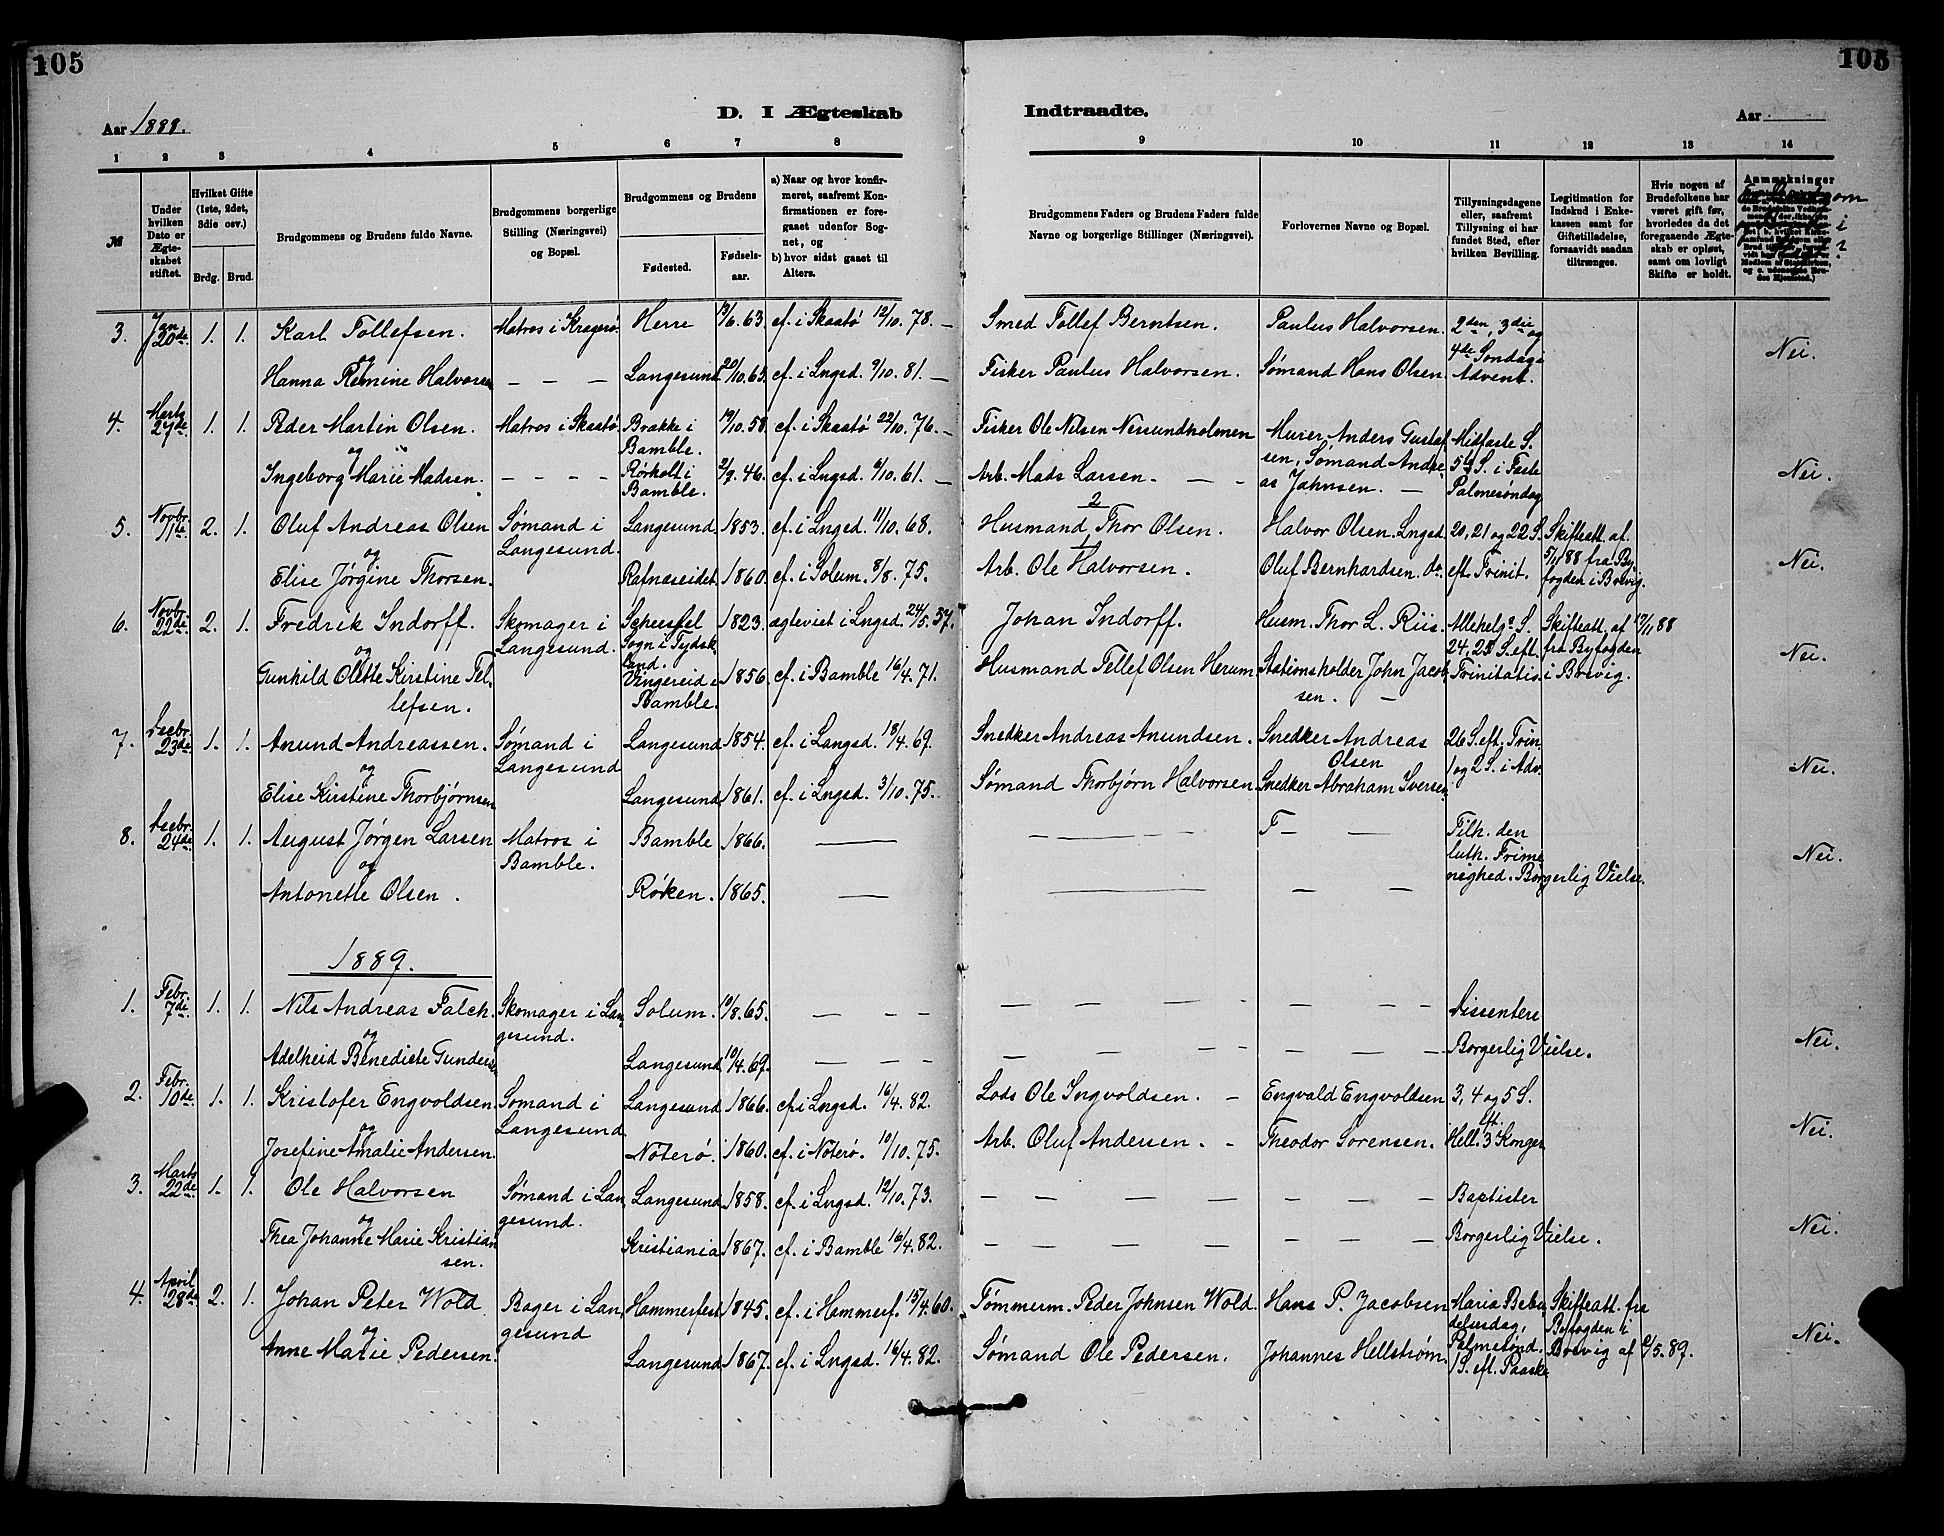 105
105
Aar 1888.
D. I Ægteskab
Indtraadte.
Aar
1 2 3 4 5 6 7 8 9 10 11 12 13 14
Under hvilken Dato er Ægteskabet stiftet.
Hvilket Gifte (1ste, 2det, 3die osv.)
Brdg. Brud.
Brudgommens og Brudens fulde Navne.
Brudgommens borgerlige Stilling (Næringsvei) og Bopæl.
Brudgommens og Brudens
Fødested.
Fødselsaar.
a) Naar og hvor konfirmeret, saafremt Konfirmationen er foregaaet udenfor Sognet, og
b) hvor sidst gaaet til Alters.
Brudgommens Faders og Brudens Faders fulde Navne og borgerlige Stillinger (Næringsvei).
Forlovernes Navne og Bopæl.
Tillysningsdagene eller, saafremt Tillysning ei har fundet Sted, efter hvilken Bevilling.
Legitimation for Indskud i Enkekassen samt for Giftetilladelse, forsaavidt saadan tiltrænges.
Hvis nogen af Brudefolkene har været gift før, hvorledes da det foregaaende Ægteskab er opløst, samt om lovligt Skifte er holdt.
Anmærkninger
3. Jan. 20de 1. 1. Karl Tollefsen. Matros i Kragerø. Herre 13/6.63. cf. i Skaatø 12/10.78. — Smed Tollef Berntsen. Paulus Halvorsen. 2den, 3die og
og
Hanna Remine Halvorsen — — — Langesund 20/10.65. cf. i Lngsd. 9/10.81. — Fisker Paulus Halvorsen. Sømand Hans Olsen. 4de Søndag i Advent. Nei.
4. Marts 27de 1. 1. Peder Martin Olsen. Matros i Skaatø. Brække i Bamble. 19/10.58. cf. i Skaatø 22/10.76. — Fisker Ole Nilsen Nessundholmen Murer Anders Gustafsen, Sømand Andreas Jahnsen. — Midfaste S.
og
Ingeborg Marie Madsen. — — — — Rørholt i Bamble. 2/9.46. cf. i Lngsd. 6/10.61. — Arb. Mads Larsen. — — 5 S. i Faste Palmesøndag Nei.
5. Novbr. 11te 2. 1. Oluf Andreas Olsen Sømand i Langesund. Langesund. 1853. cf. i Lngsd. 11/10.68. Husmand 2 Thor Olsen. Halvor Olsen. Lngsd. 20, 21 og 22 S. Skifteatt. af
og
Elise Jørgine Thorsen. Rafnaseidet. 1860. cf. i Solum. 8/8.75. Arb. Ole 1 Halvorsen. Oluf Bernhardsen. do. eft. Trinit. 5/11 88 fra Byfogden i Brevig. Nei.
6. Novbr. 22de 2. 1. Fredrik Indorff. Skomager i Langesund. Scheessel Sogn i Tydskland. 1823. ægteviet i Lngsd. 24/5.57. Johan Indorff. Husm. Thor L. Riis. Allehelg. S. Skifteatt. af 17/11 88
og
Gunhild Olette Kirstine Tellefsen. Vingereid i Bamble. 1856. cf. i Bamble 16/4.71. Husmand Tellef Olsen Herum. Stationsholder John Jacobsen. — 24, 25 S. eft. Trinitatis. fra Byfogden i Brevig. Nei.
7. Dsebr. 23de 1. 1. Anund Andreassen. Sømand i Langesund Langesund 1854. cf. i Langsd. 18/4.69. Snedker Andreas Anundsen. Snedker Andreas Olsen 26 S. eft. Trin.
og
Elise Kirstine Thorbjørnsen Langesund 1861. cf. i Lngsd. 3/10.75. Sømand Thorbjørn Halvorsen. Snedker Abraham Iversen. 1 og 2 S. i Adv. Nei.
8. Dsebr. 24de 1. 1. August Jørgen Larsen Matros i Bamble. Bamble 1866. — Tilh. den
og
Antonette Olsen. Røken. 1865. — luth. Frimenighed. Borgerlig Vielse. Nei.
1889.
1. Febr. 7de 1. 1. Nils Andreas Falch. Skomager i Langesund. Solum. 10/8.65. — — — Dissentere
og
Adelheid Benedicte Gundersen Langesund. 10/4.69. — — — Borgerlig Vielse. Nei.
2. Febr. 10de 1. 1. Kristofer Engvoldsen. Sømand i Langesund. Langesund 1866. cf. i Lngsd. 16/4.82. Lods Ole Ingvoldsen. — Engvald Engvoldsen 3, 4 og 5 S.
og
Josefine Amalie Andersen. Nøterø. 1860. cf. i Nøterø. 10/10.75. Arb. Oluf Andersen. — Theodor Sørensen. eft. Hell. 3 Konger Nei.
3. Marts 22de 1. 1. Ole Halvorsen Sømand i Langesund. Langesund 1858. cf. i Lngsd. 12/10.73. — — — Baptister
og
Thea Johanne Marie Kristiansen. Kristiania 1867. cf. i Bamble 16/4.82. — — — Borgerlig Vielse. Nei.
4. April 28de 2. 1. Johan Peter Wold Bager i Langesund Hammerfest 1845. cf. i Hammerf. 15/4.60. Tømmerm. Peder Johnsen Wold. Hans P. Jacobsen Maria Bebudelsesdag, Skifteatt. fra
og
Anne Marie Pedersen. Langesund 1867. cf. i Lngsd. 16/4.82. Sømand Ole Pedersen. Johannes Hellstrøm. Palmesønd. 1 S. eft. Paaske Byfogden i Brevig af 2/5.89. Nei.